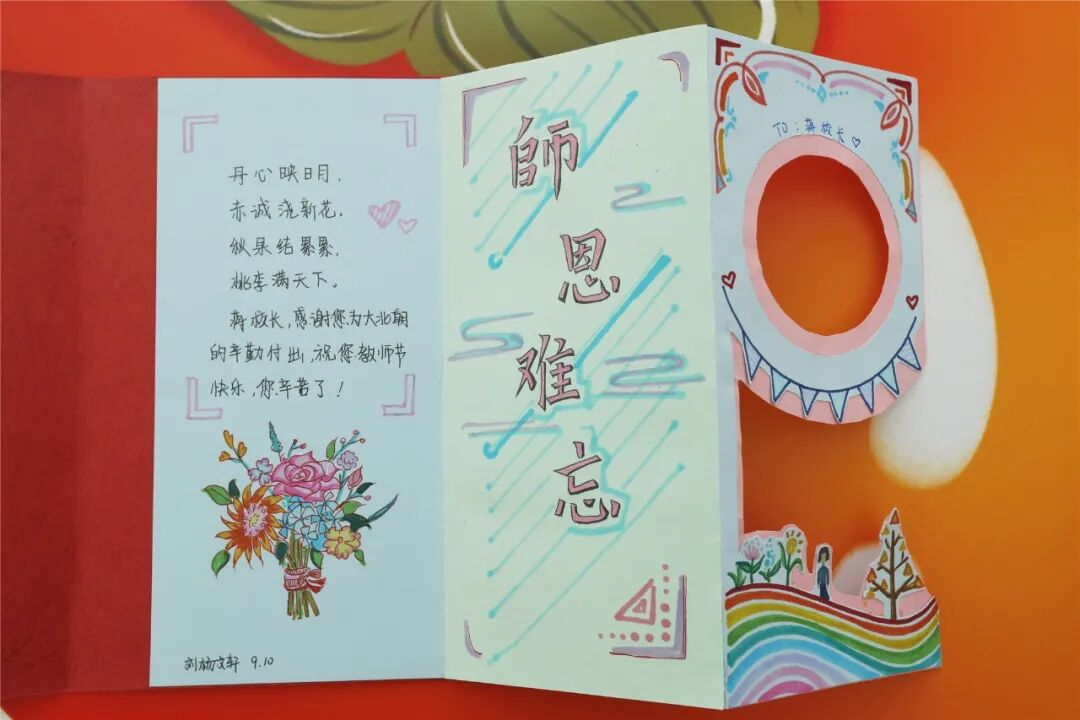 丹心映日月，
赤诚浇新花。
秋果结累累，
桃李满天下。
蒋校长，感谢您为大北朝
的辛勤付出，祝您教师节
快乐，您辛苦了！
刘杨文轩 9.10
師恩难忘
TO：蒋校长♡